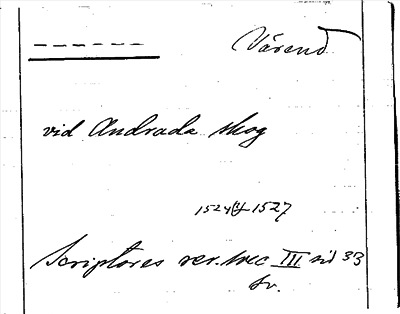 Värend
vid Andrada skog
1524(?)-1527
Scriptores rer. svec III sid 33
sv.